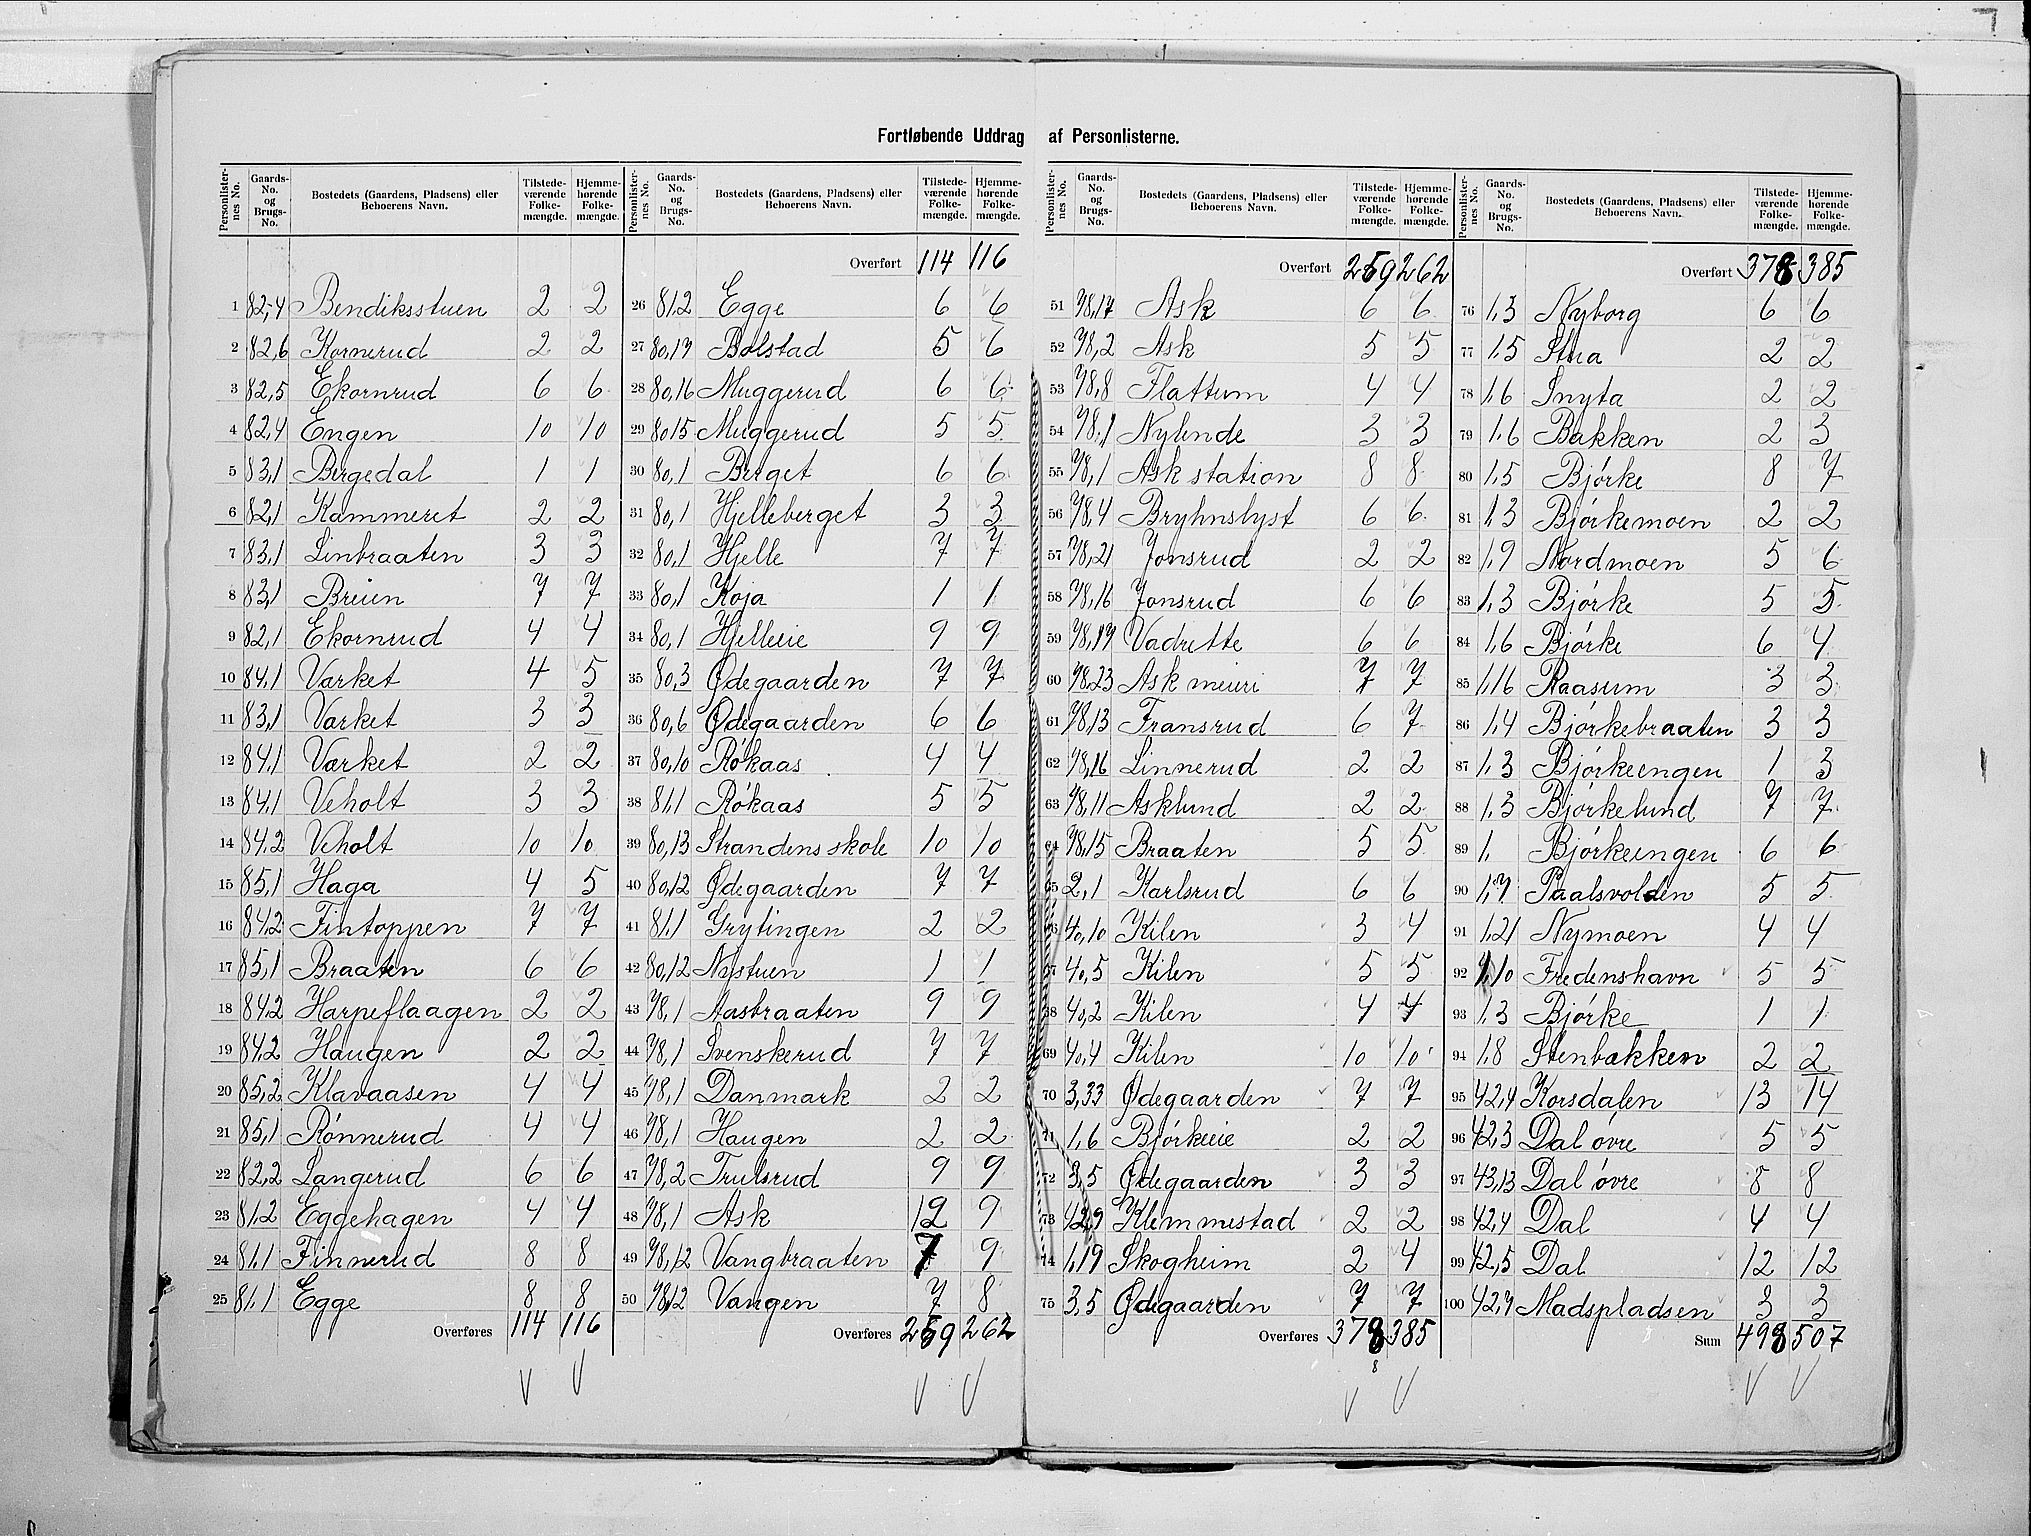 Fortløbende Uddrag af Personlisterne.
Personlisternes No. Gaards-No. og Brugs-No. Bostedets (Gaardens, Pladsens) eller Beboerens Navn. Tilstedeværende Folkemængde. Hjemmehørende Folkemængde.
1 82,4 Bendiksstuen 2 2
2 82,6 Kornerud 2 2
3 82,5 Ekornrud 6 6
4 82,4 Engen 10 10
5 83,1 Bergedal 1 1
6 82,1 Kammeret 2 2
7 83,1 Linbraaten 3 3
8 83,1 Breien 7 7
9 82,1 Ekornrud 4 4
10 84,1 Værket 4 5
11 83,1 Værket 3 3
12 84,1 Værket 2 2
13 84,1 Veholt 3 3
14 84,2 Veholt 10 10
15 85,1 Haga 4 5
16 84,2 Fintoppen 7 7
17 85,1 Braaten 6 6
18 84,2 Harpeflaagen 2 2
19 84,2 Haugen 2 2
20 85,2 Klavaasen 4 4
21 85,1 Rønnerud 4 4
22 82,2 Langerud 6 6
23 81,2 Eggehagen 4 4
24 81,1 Finnerud 8 8
25 81,1 Egge 8 8
Overføres 114 116
Personlisternes No. Gaards-No. og Brugs-No. Bostedets (Gaardens, Pladsens) eller Beboerens Navn. Tilstedeværende Folkemængde. Hjemmehørende Folkemængde.
Overført 114 116
26 81,2 Egge 6 6
27 80,19 Bolstad 5 6
28 80,16 Muggerud 6 6
29 80,15 Muggerud 5 5
30 80,1 Berget 6 6
31 80,1 Hjelleberget 3 3
32 80,1 Hjelle 7 7
33 80,1 Koja 1 1
34 80,1 Hjelleeie 9 9
35 80,3 Ødegaarden 7 7
36 80,6 Ødegaarden 6 6
37 80,10 Røkaas 4 4
38 81,1 Røkaas 5 5
39 80,13 Strandens skole 10 10
40 80,12 Ødegaarden 7 7
41 81,1 Grytingen 2 2
42 80,12 Nystuen 1 1
43 78,1 Aasbraaten 9 9
44 78,1 Svenskerud 7 7
45 78,1 Danmark 2 2
46 78,1 Haugen 2 2
47 78,2 Trulsrud 9 9
48 78,1 Ask 12 9
49 78,12 Vangbraaten 7 9
50 78,12 Vangen 7 8
Overføres 259 262
Personlisternes No. Gaards-No. og Brugs-No. Bostedets (Gaardens, Pladsens) eller Beboerens Navn. Tilstedeværende Folkemængde. Hjemmehørende Folkemængde.
Overført 259 262
51 78,17 Ask 6 6
52 78,2 Ask 5 5
53 78,8 Flattum 4 4
54 78,1 Nylende 3 3
55 78,1 Ask station 8 8
56 78,4 Bryhnslyst 6 6
57 78,21 Jonsrud 2 2
58 78,16 Jonsrud 6 6
59 78,19 Vadrette 6 6
60 78,23 Ask meieri 7 7
61 78,13 Fransrud 6 7
62 78,16 Linnerud 2 2
63 78,11 Asklund 2 2
64 78,15 Braaten 5 5
65 2,1 Karlsrud 6 6
66 40,10 Kilen 3 4
67 40,5 Kilen 5 5
68 40,2 Kilen 4 4
69 40,4 Kilen 10 10
70 3,33 Ødegaarden 7 7
71 1,6 Bjørkeeie 2 2
72 3,5 Ødegaarden 3 3
73 42,9 Klemmestad 2 2
74 1,19 Skogheim 2 4
75 3,5 Ødegaarden 7 7
Overføres 378 385
8
Personlisternes No. Gaards-No. og Brugs-No. Bostedets (Gaardens, Pladsens) eller Beboerens Navn. Tilstedeværende Folkemængde. Hjemmehørende Folkemængde.
Overført 378 385
76 1,3 Nyborg 6 6
77 1,5 Stua 2 2
78 1,6 Snyta 2 2
79 1,6 Bakken 2 3
80 1,5 Bjørke 8 7
81 1,3 Bjørkemoen 2 2
82 1,9 Nordmoen 5 6
83 1,3 Bjørke 5 5
84 1,6 Bjørke 6 4
85 1,16 Raasum 3 3
86 1,4 Bjørkebraaten 3 3
87 1,3 Bjørkeengen 1 3
88 1,3 Bjørkelund 7 7
89 1, Bjørkeengen 6 6
90 1,7 Paalsvolden 5 5
91 1,21 Nymoen 4 4
92 1,10 Fredenshavn 5 5
93 1,3 Bjørke 1 1
94 1,8 Stenbækken 2 2
95 42,4 Korsdalen 13 14
96 42,3 Dal øvre 5 5
97 43,13 Dal øvre 8 8
98 42,4 Dal 4 4
99 42,5 Dal 12 12
100 42,7 Madspladsen 3 3
Sum 498 507